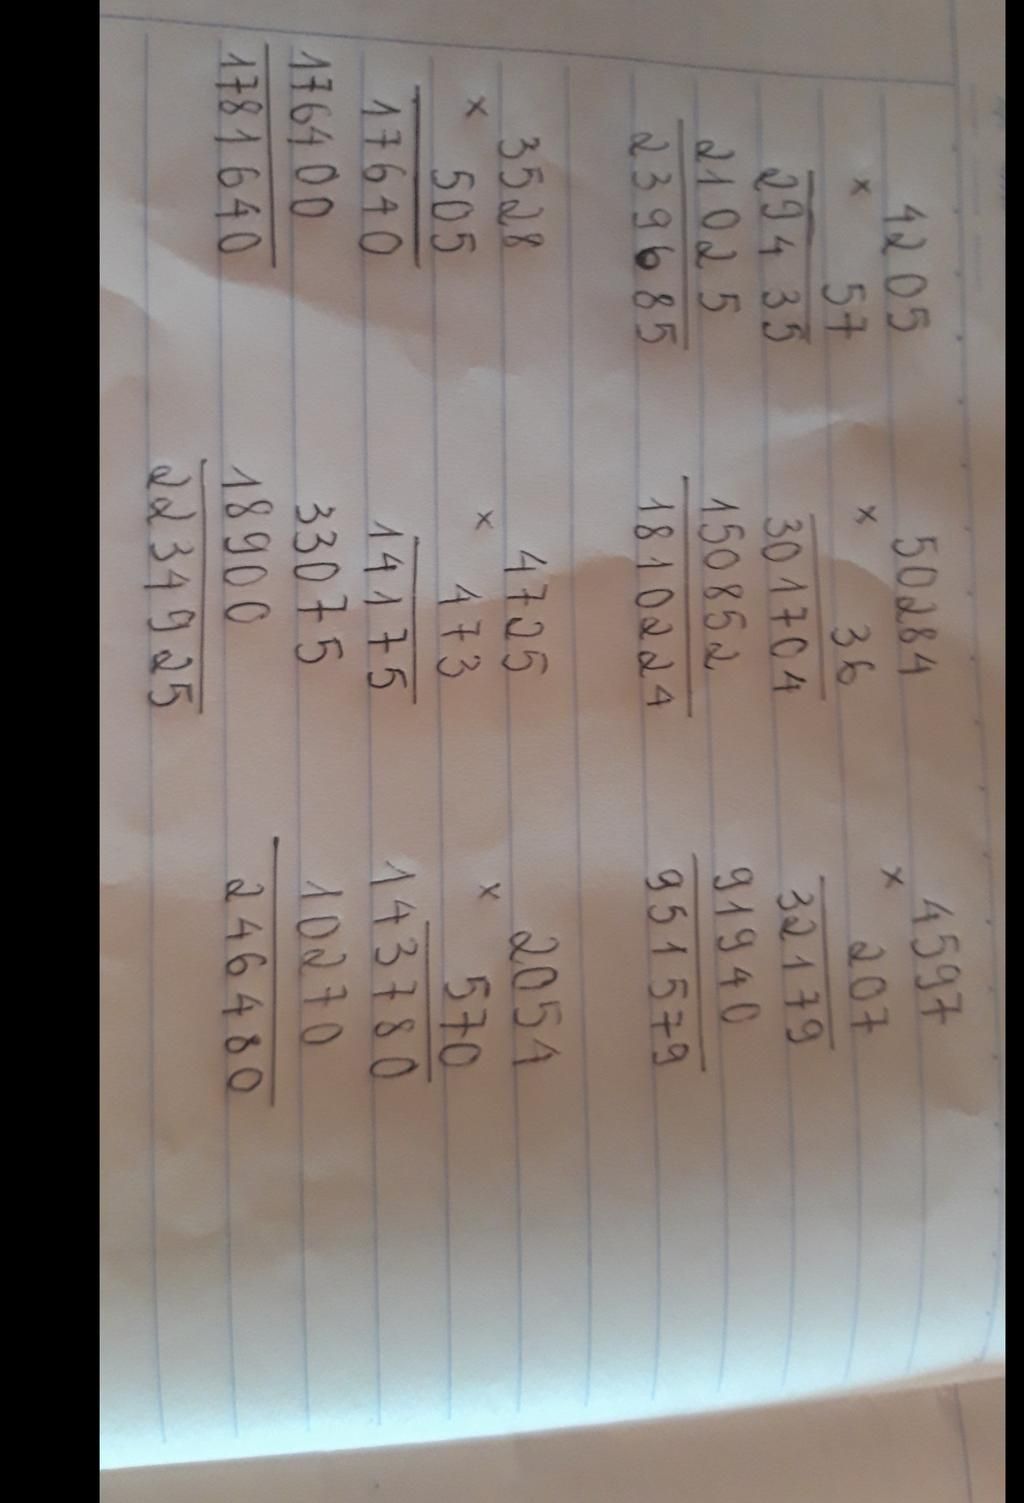 4205 50284 4597
x 57 x 36 x 207
29435 301704 32179
21025 150852 91940
239685 1810224 951579
3528 4725 2054
x 505 x 473 x 570
17640 14175 143780
176400 33075 10270
1781640 18900 246480
2234925